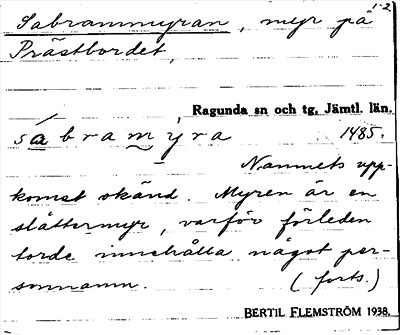 1-2.
Sabrammyran, myr på
Prästbordet,
Ragunda sn och tg, Jämtl. län.
sábramyra 1485.
Namnets upp-
komst okänd. Myren är en
slåttermyr, varför förleden
torde innehålla något per-
sonnamn. (forts.)
BERTIL FLEMSTRÖM 1938.